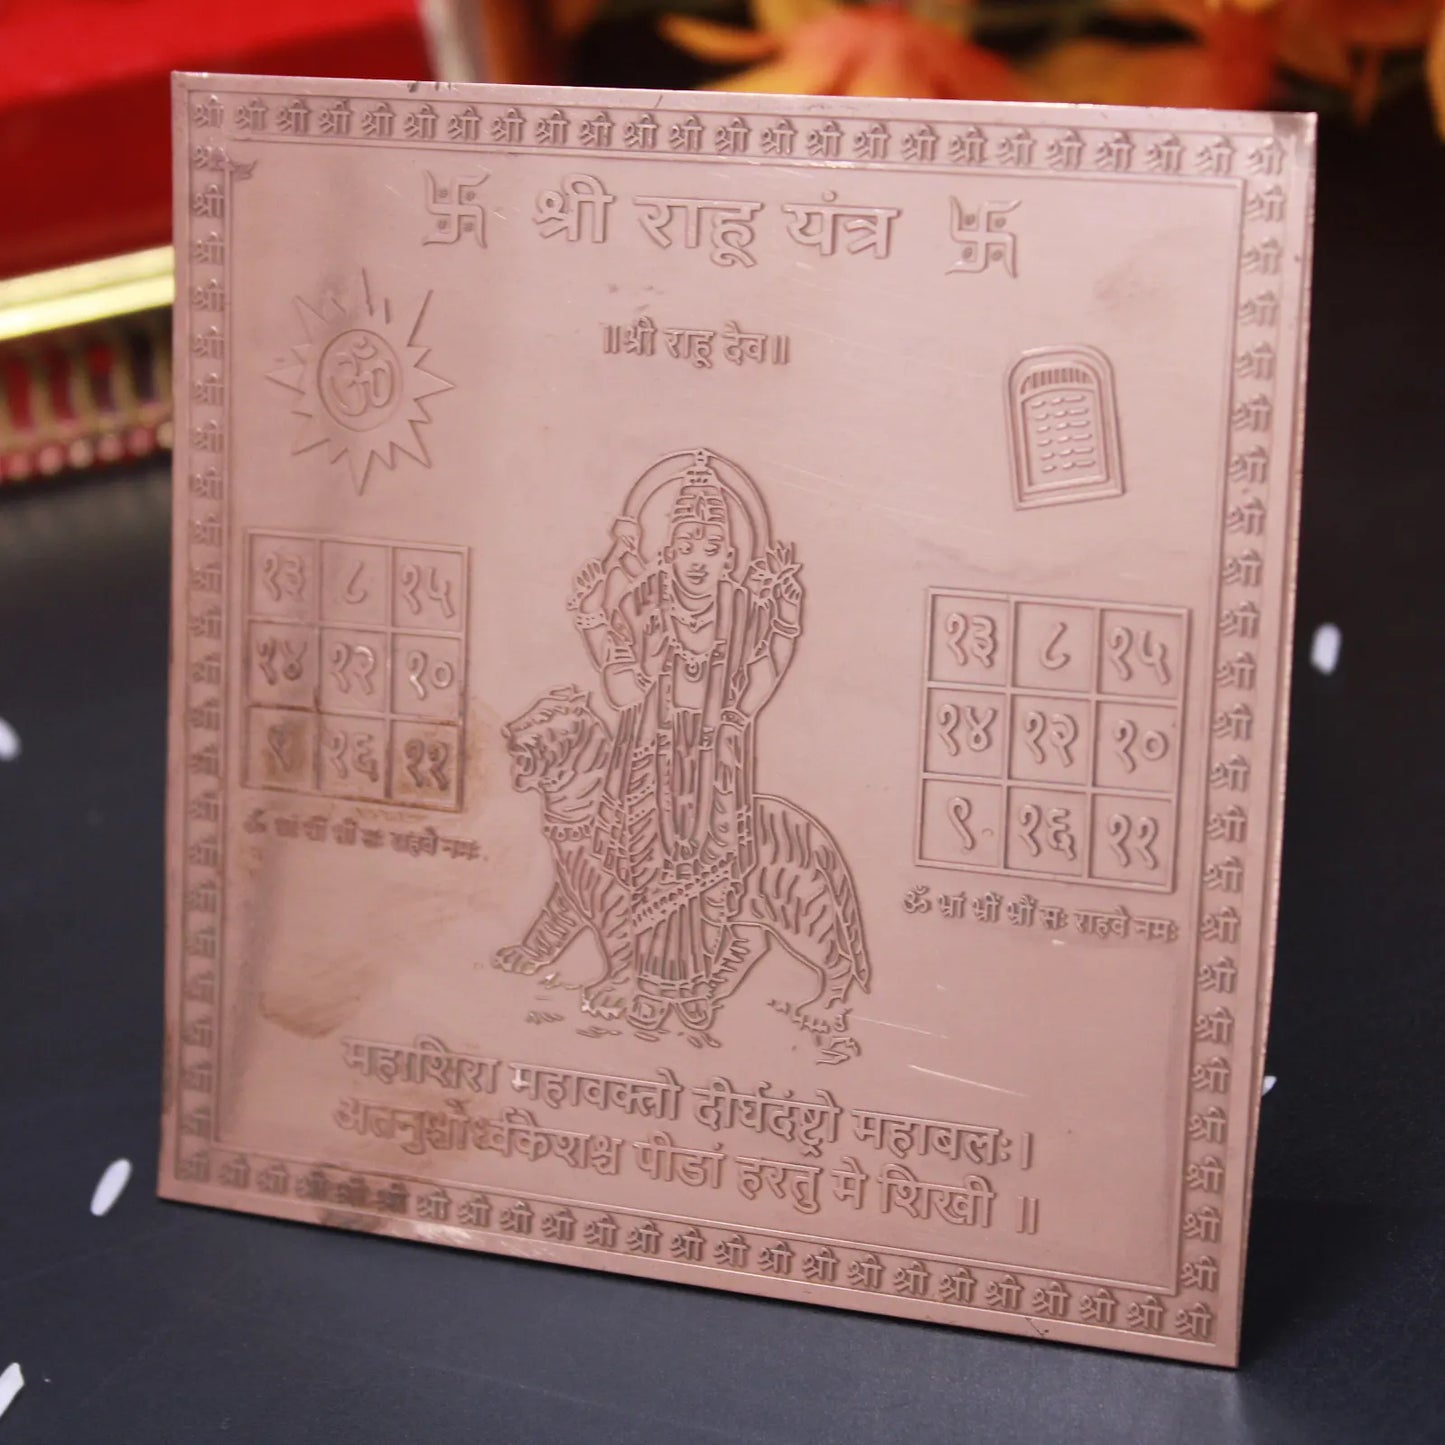 श्री श्री श्री श्री श्री श्री श्री श्री श्री श्री श्री श्री श्री श्री श्री श्री श्री श्री श्री श्री श्री श्री श्री श्री
श्री राहू यंत्र
॥श्री राहू देव॥
ॐ
१३ ८ १५
१४ १२ १०
९ १६ ११
ॐ भ्रां भ्रीं भ्रौं सः राहवे नमः
१३ ८ १५
१४ १२ १०
९ १६ ११
ॐ भ्रां भ्रीं भ्रौं सः राहवे नमः
महाशिरा महावक्तो दीर्घदंष्ट्रो महाबलः।
अतनुश्चोर्ध्वकेशश्च पीडां हरतु मे शिखी ॥
श्री श्री श्री श्री श्री श्री श्री श्री श्री श्री श्री श्री श्री श्री श्री श्री श्री श्री श्री श्री श्री श्री श्री श्री